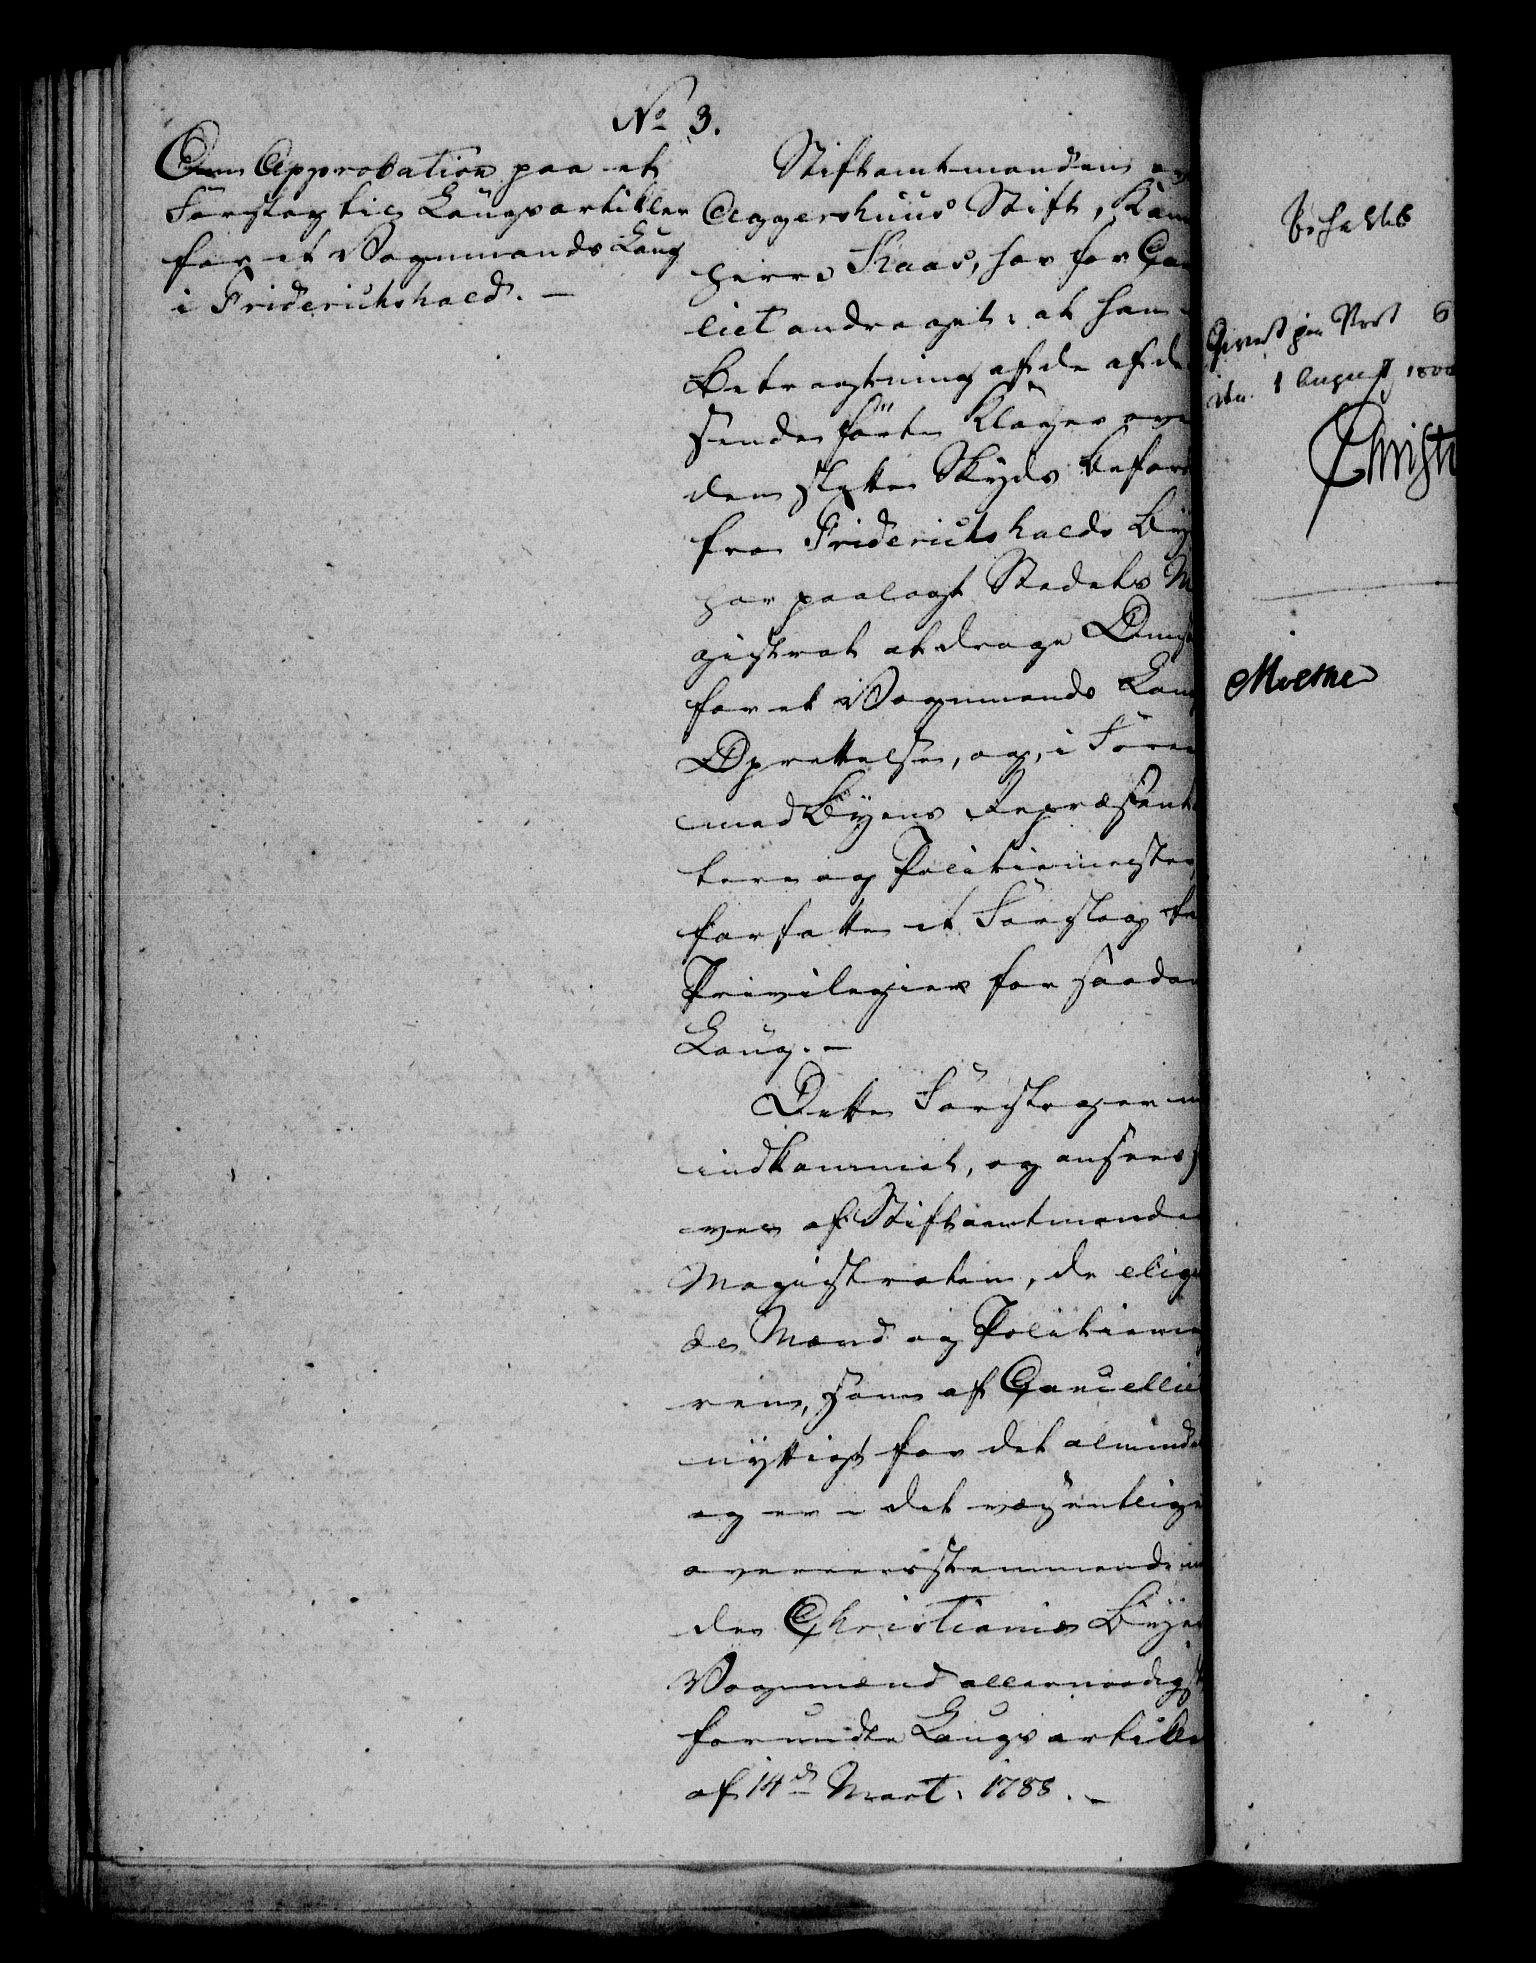 No 3.
Om Approbation paa et
Forslag til Laugsartikler
for et Vognmands Laug
i Friderichshald. —
Stiftamtmanden over
Aggershuus Stift, Kam
herre Kaas, har for Can
liet andraget: at han i
Betragtning af de af de
sende förte Klager over
den slette Skyds Befor
fra Friderichshalds Bye
har paalagt Stedets Ma
gistrat at drage Oms
for et Vognmands Laug
Oprettelse, og, i Foren
med Byens Repræsent
tere og Politiemester,
forfatte et Forslag til
Privilegier for saadan
Laug. —
Dette Forslag er nu
indkommet, og ansees s
vel af Stiftamtmanden
Magistraten, de elige
de Mænd og Politieme
ren, som af Cancellie
nyttigt for det alminde
og er i det væsentlige
overeensstemmende m
de Christiania Byes
Vognmænd allernaadigst
forundte Laugsartikler
af 14de Mart. 1788. —
Befales
Givet paa Vort
den 1 August 180
Christi
Moltke